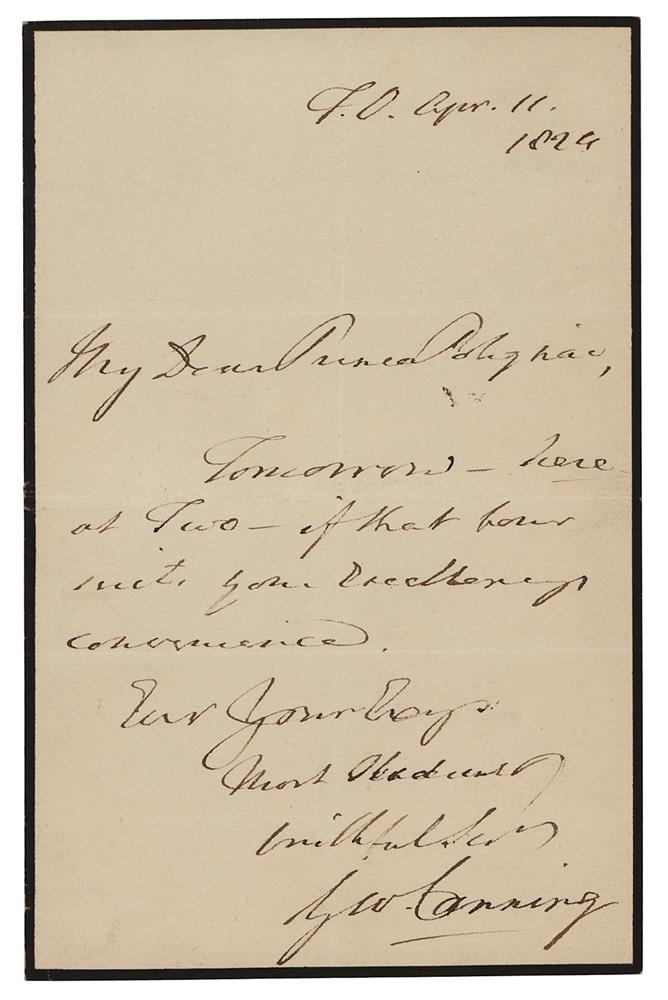 F.O. Apr. 11.
1824
My Dear Prince Polignac,
Tomorrow – here
at Two – if that hour
suits your Excellency's
convenience.
Ever Your Excys
Most Obedient
faithful Sert
Geo. Canning